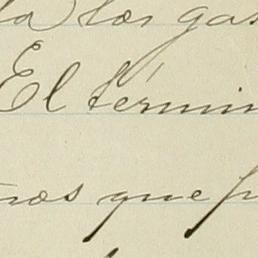 la los gas
El términ
nos que p